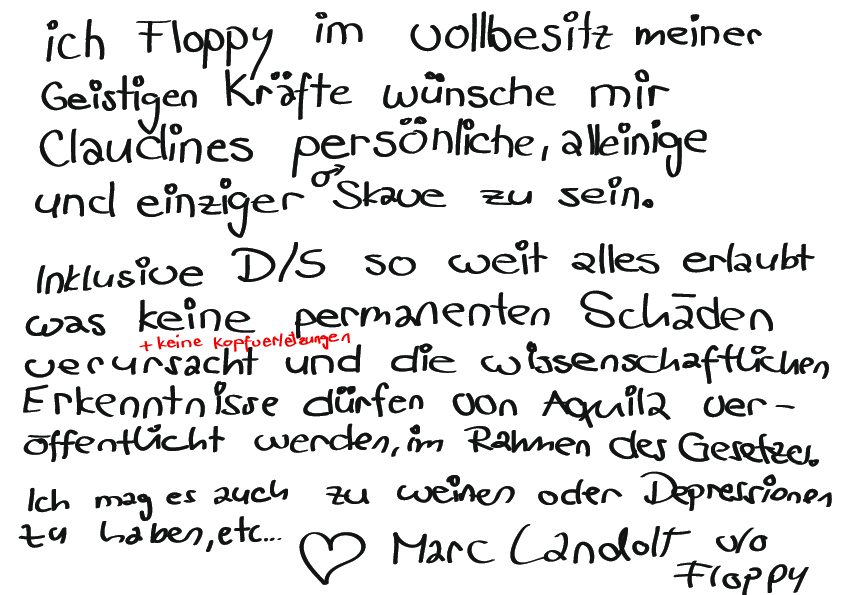 ich Floppy im Vollbesitz meiner
Geistigen Kräfte wünsche mir
Claudines persönliche, alleinige
und einziger ♂ Skave zu sein.
Inklusive D/S so weit alles erlaubt
was keine permanenten Schäden
+ keine Kopfverletzungen
verursacht und die wissenschaftlichen
Erkenntnisse dürfen von Aquila ver-
öffentlicht werden, im Rahmen des Gesetzes.
Ich mag es auch zu weinen oder Depressionen
zu haben, etc...
♡ Marc Landolt v/o
Floppy